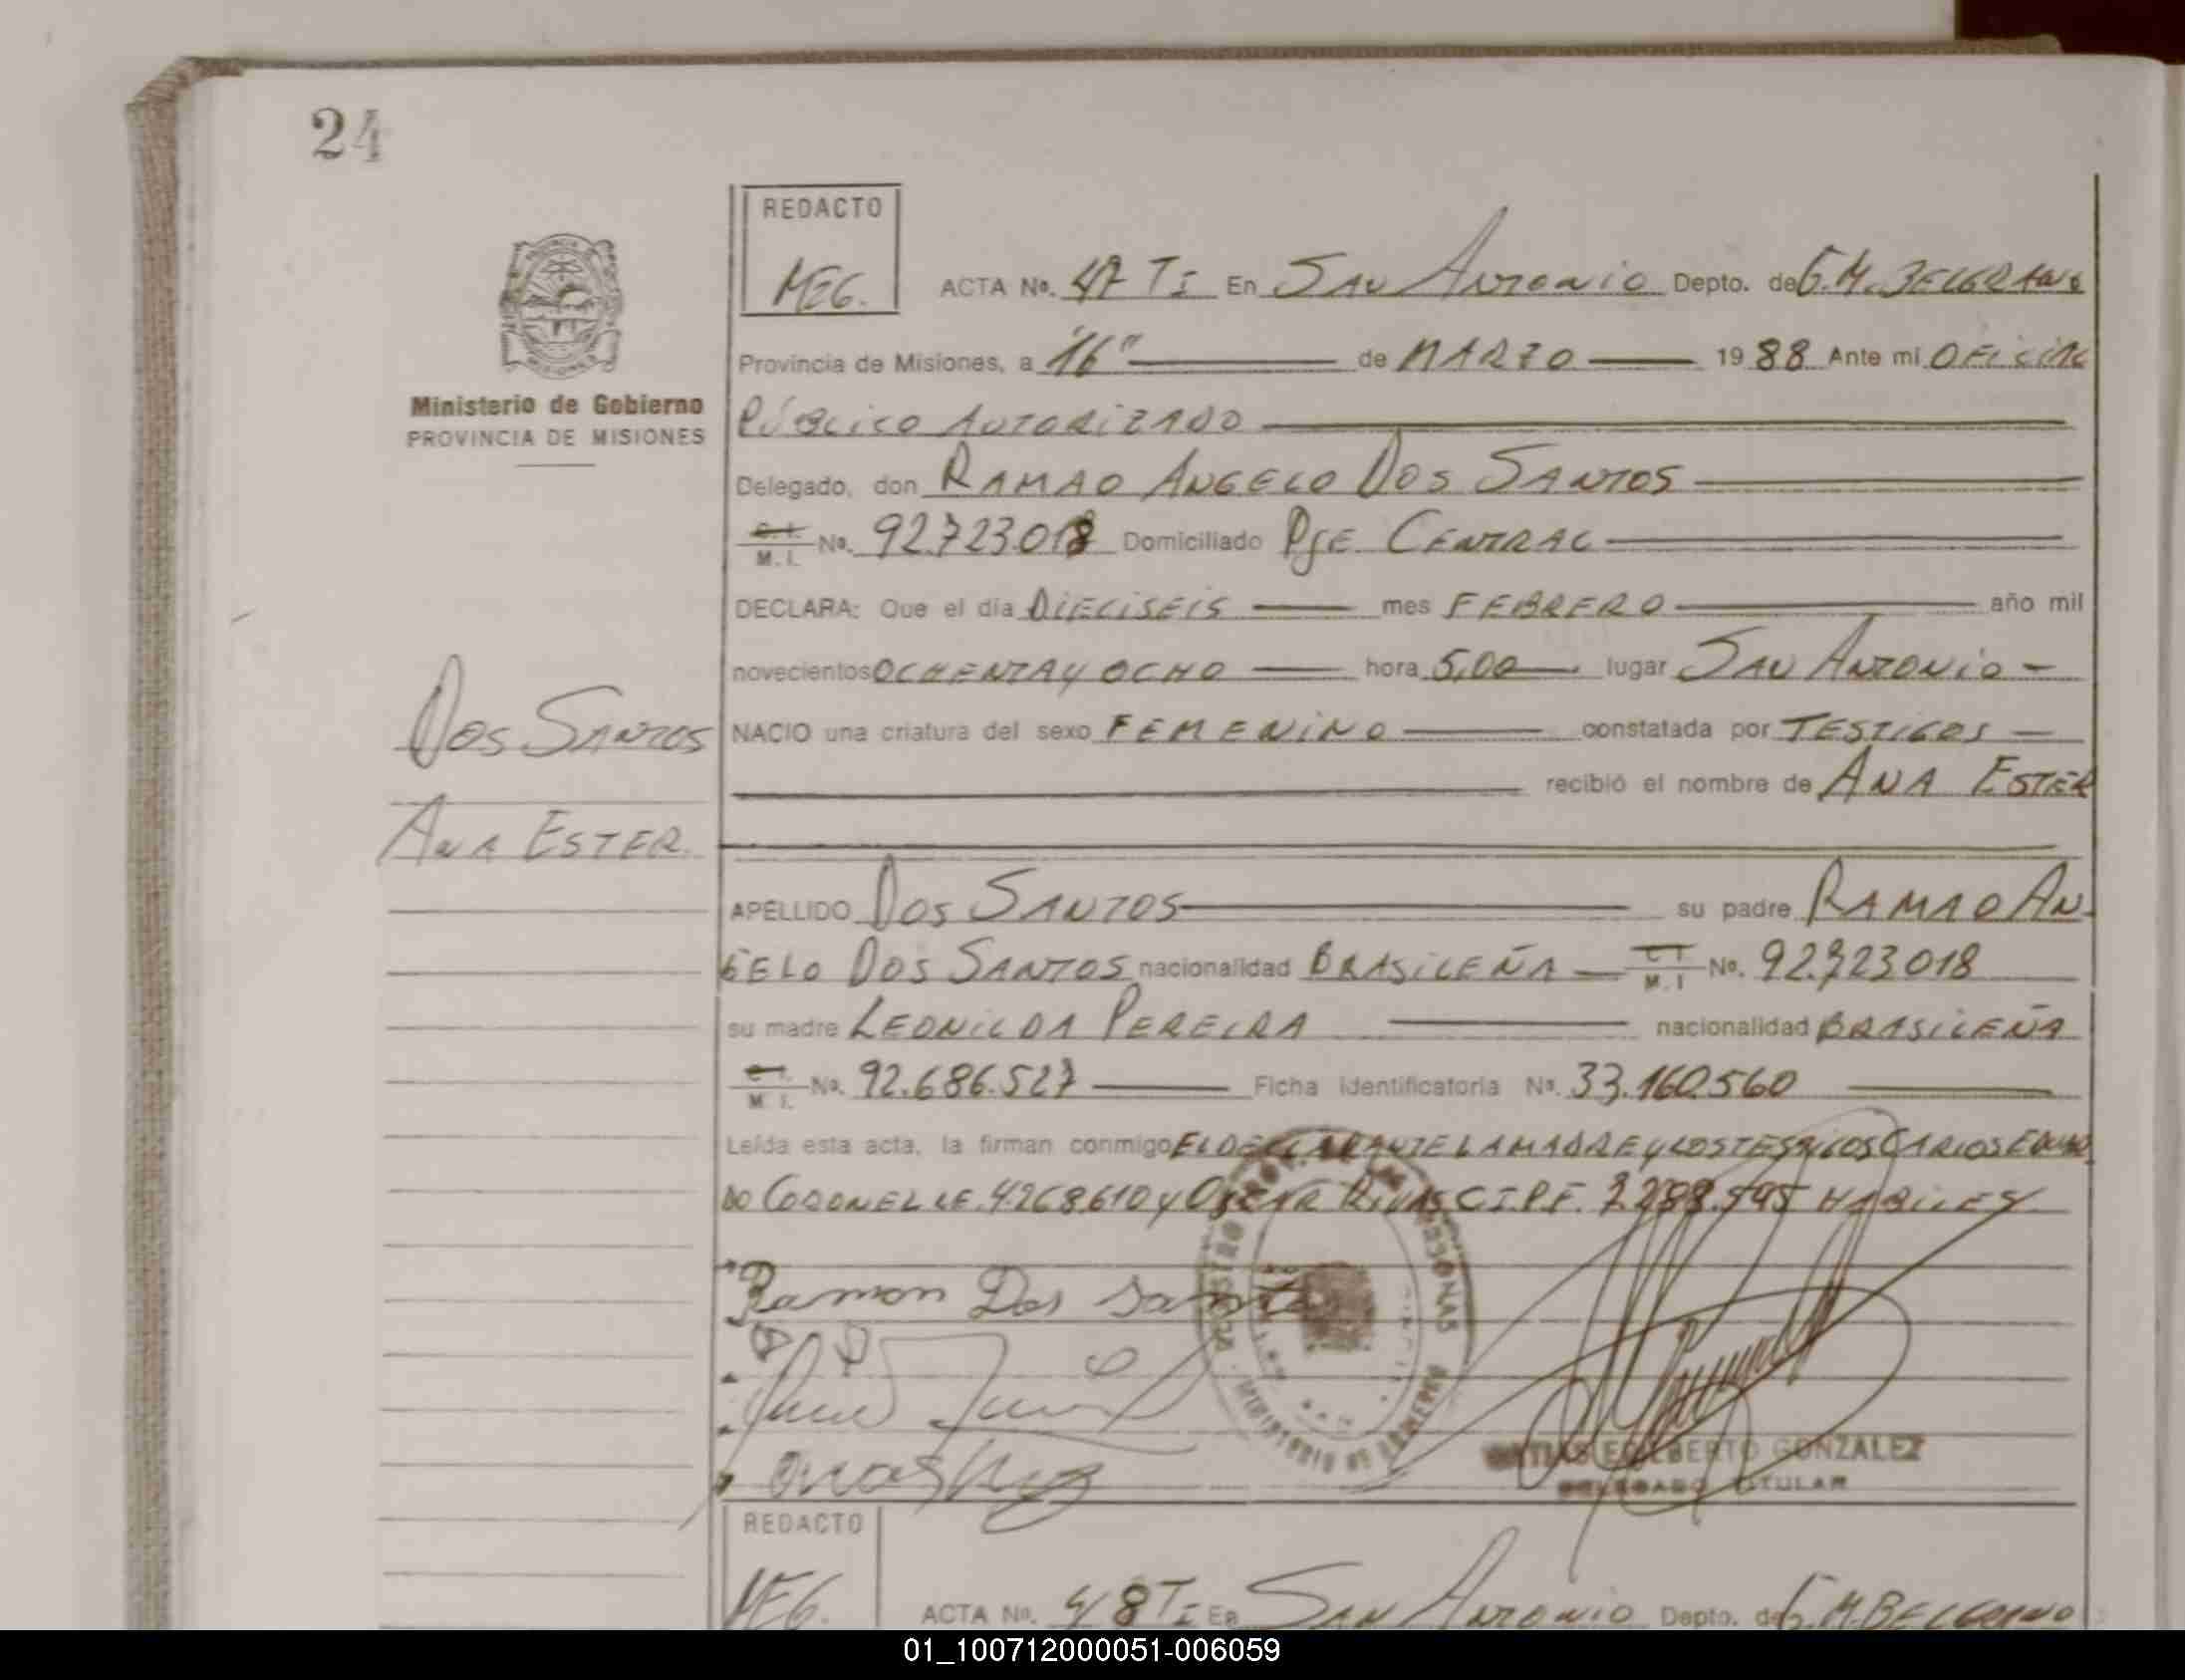 24
REDACTO
MEG.
ACTA No. 47 TI En SAN ANTONIO Depto. de G.M. BELGRANO
Provincia de Misiones, a "16" de MARZO 1988 Ante mi OFICIAL
PÚBLICO AUTORIZADO
Ministerio de Gobierno
PROVINCIA DE MISIONES
Delegado, don RAMAO ANGELO DOS SANTOS
C.I. M.I. No. 92.723.018 Domiciliado PJE. CENTRAL
DECLARA: Que el día DIECISEIS mes FEBRERO año mil
novecientos OCHENTA Y OCHO hora 5,00 lugar SAN ANTONIO -
DOS SANTOS
NACIO una criatura del sexo FEMENINO constatada por TESTIGOS -
recibió el nombre de ANA ESTER
ANA ESTER.
APELLIDO DOS SANTOS su padre RAMAO AN-
GELO DOS SANTOS nacionalidad BRASILEÑA - C.I. M.I. No. 92.723.018
su madre LEONILDA PEREIRA nacionalidad BRASILEÑA
C.I. M.I. No. 92.686.527 Ficha identificatoria No. 33.160.560
Leída esta acta, la firman conmigo EL DECLARANTE LA MADRE Y LOS TESTIGOS CARLOS EDUAR
DO CORONEL LE. 4.268.610 Y OSCAR RIVAS C.I.P.F. 7.288.545 HABILES
Ramon Dos Santos
MINISTERIO DE GOBIERNO
MATIAS EDILBERTO GONZALEZ
DELEGADO TITULAR
REDACTO
MEG.
ACTA No. 48 TI En SAN ANTONIO Depto. de G.M. BELGRANO
01_100712000051-006059